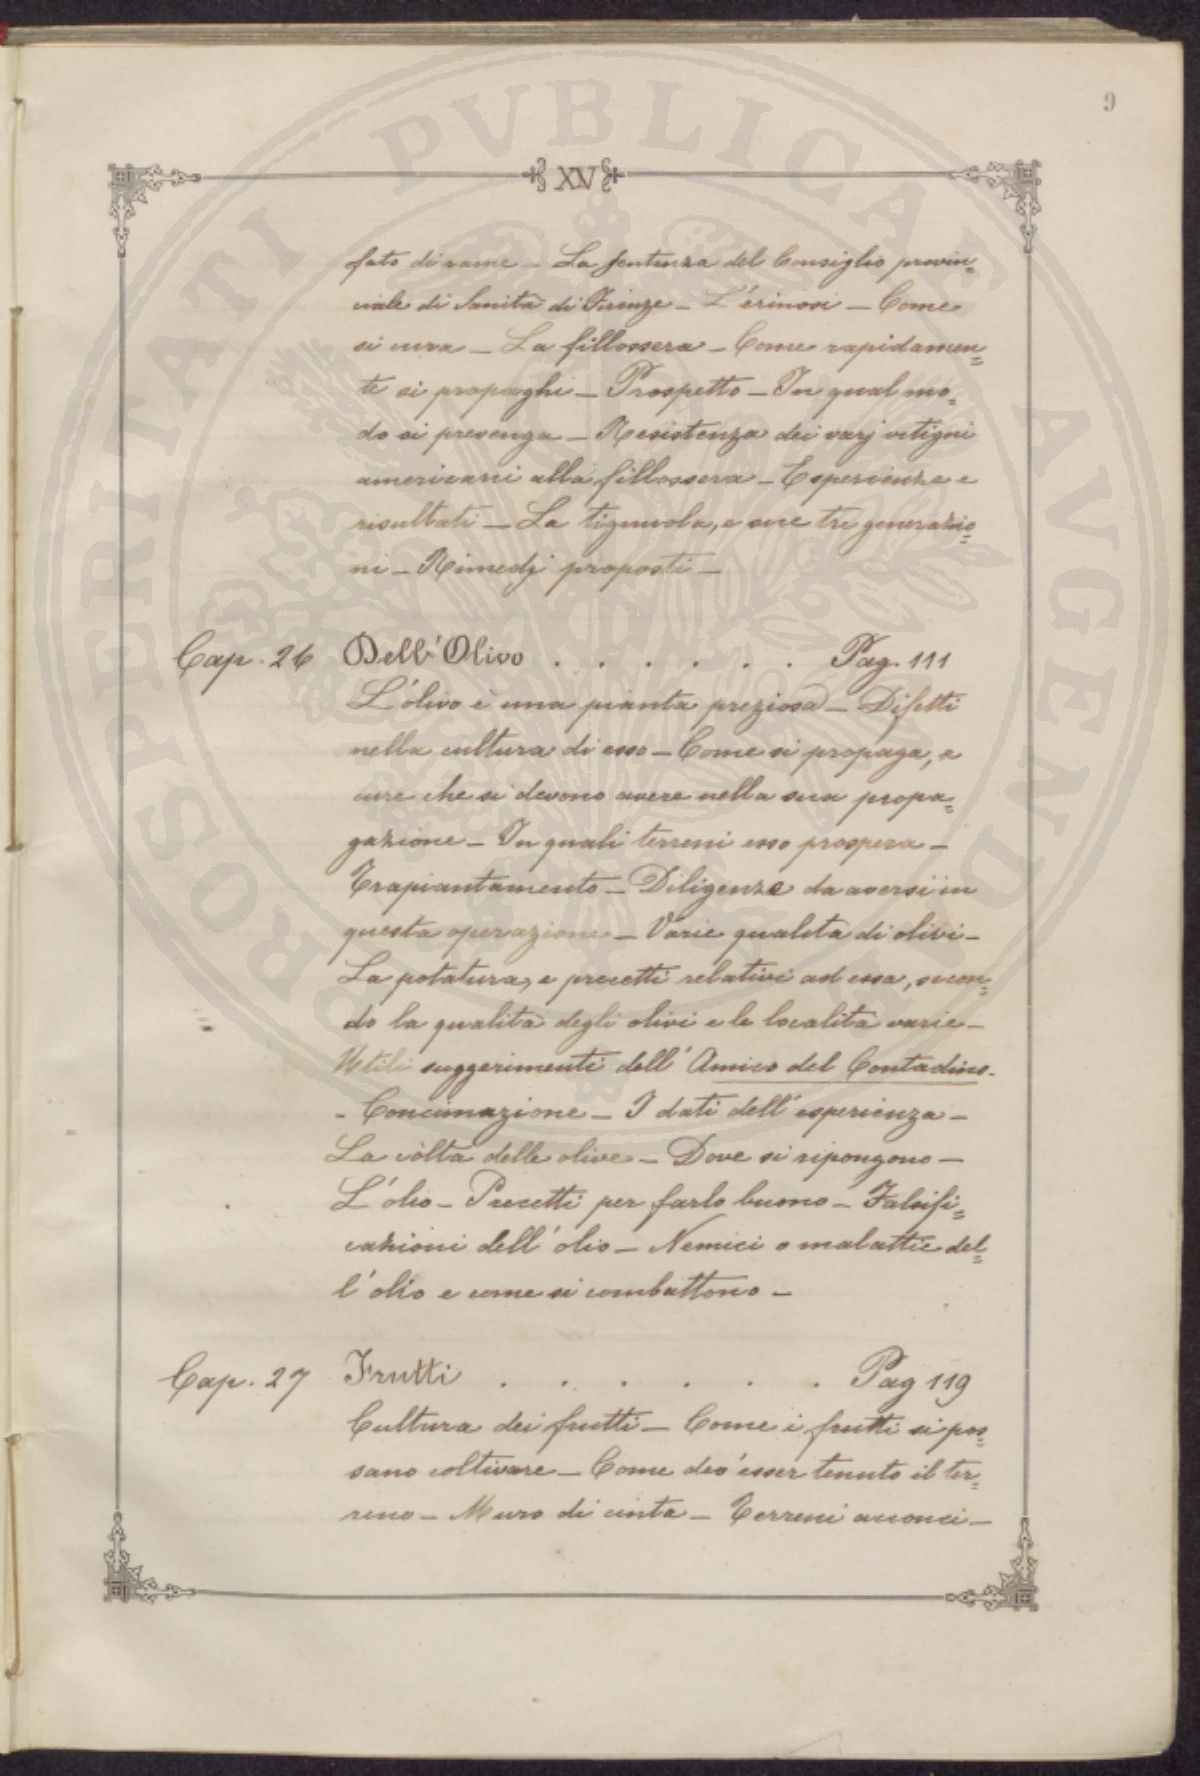 9
XV
fato di rame – La sentenza del Consiglio provin=
ciale di Sanità di Firenze – L'erinosi – Come
si cura – La fillossera – Come rapidamen=
te si propaghi – Prospetto – In qual mo=
do si prevenga – Resistenza dei varj vitigni
americani alla fillossera – Esperienze e
risultati – La tignuola, e sue tre generazio=
ni – Rimedj proposti –
Cap. 26 Dell'Olivo . . . . . . Pag. 111
L'olivo è una pianta preziosa – Difetti
nella cultura di esso – Come si propaga, e
cure che si devono avere nella sua propa=
gazione – In quali terreni esso prospera –
Trapiantamento – Diligenze da aversi in
questa operazione – Varie qualità di olivi –
La potatura, e precetti relativi ad essa, secon=
do la qualità degli olivi e le località varie –
Utili suggerimenti dell'Amico del Contadino.
- Concimazione – I dati dell'esperienza –
La còlta delle olive – Dove si ripongono –
L'olio – Precetti per farlo buono – Falsifi=
cazioni dell'olio – Nemici o malattie del=
l'olio e come si combattono –
Cap. 27 Frutti . . . . . . Pag 119
Cultura dei frutti – Come i frutti si pos=
sano coltivare – Come dev'esser tenuto il ter=
reno – Muro di cinta – Terreni acconci –
PROSPERITATI PVBLICAE AVGENDAE